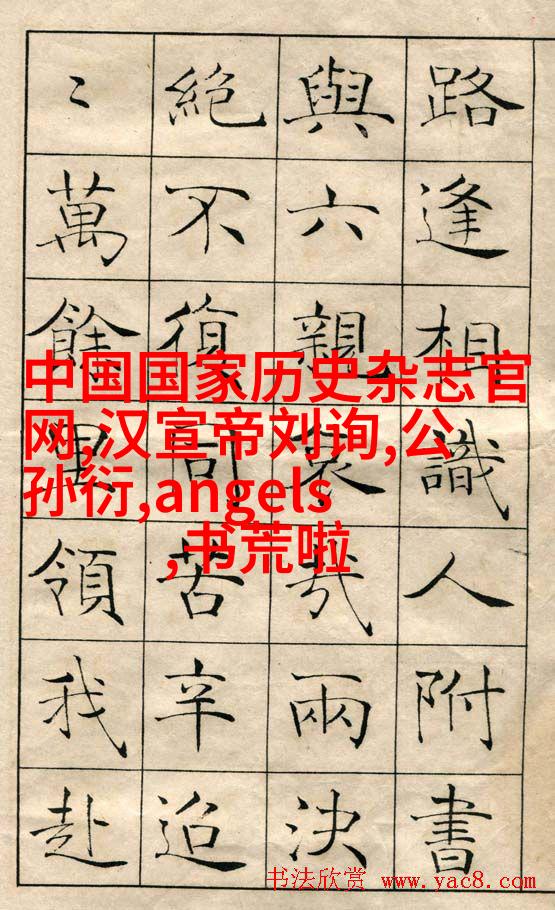 路逢相識人附書
與六親哀哉兩決
絕不復同苦辛迢
〻萬餘里領我赴
中国国家历史杂志官
网,汉宣帝刘询,公
孙衍,angels
,书荒啦
书法欣赏 www.yac8.com